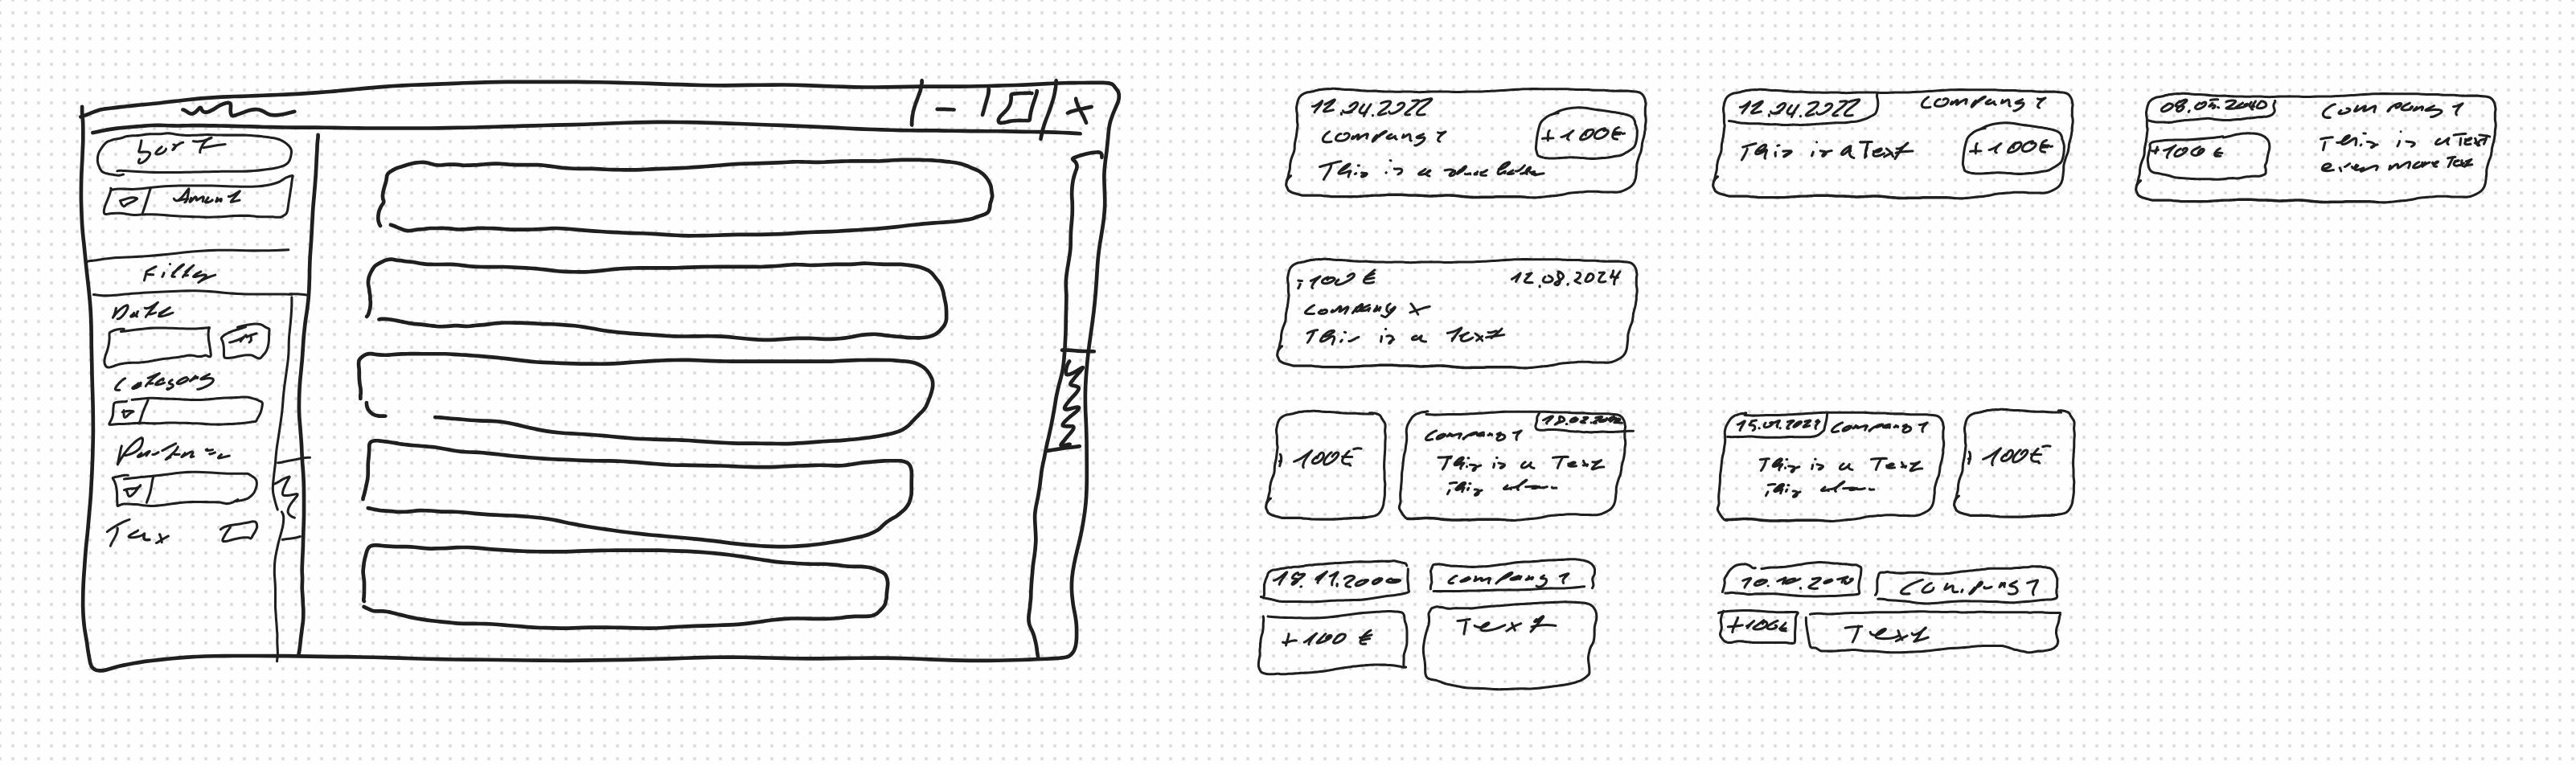 Sort
Amount
Filter
Date
Category
Partner
Tax
12.04.2022
Company 1
+100€
This is a
12.04.2022
Company 1
This is a Text
+100€
08.05.2040
Company 1
+100€
This is a Text
even more Text
100€
12.08.2024
Company X
This is a Text
100€
Company 1
This is a Text
This
15.01.2021
Company 1
This is a Text
This
100€
18.11.2000
Company 1
+100€
Text
10.10.2010
Company 1
+100€
Text